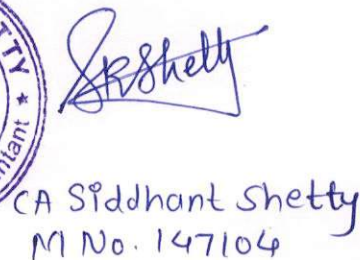 TTY
SRShetty
★
ntant
CA Siddhant Shetty
M No. 147104